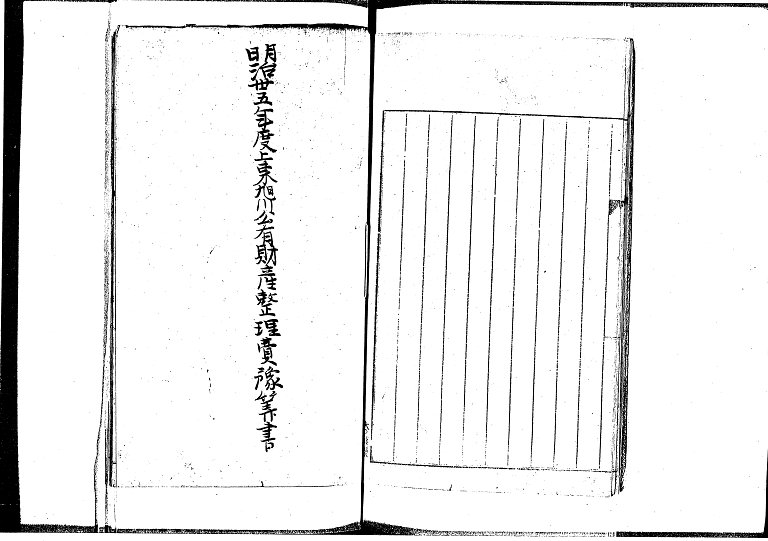 明治卅五年度上東旭川公有財産整理費豫算書